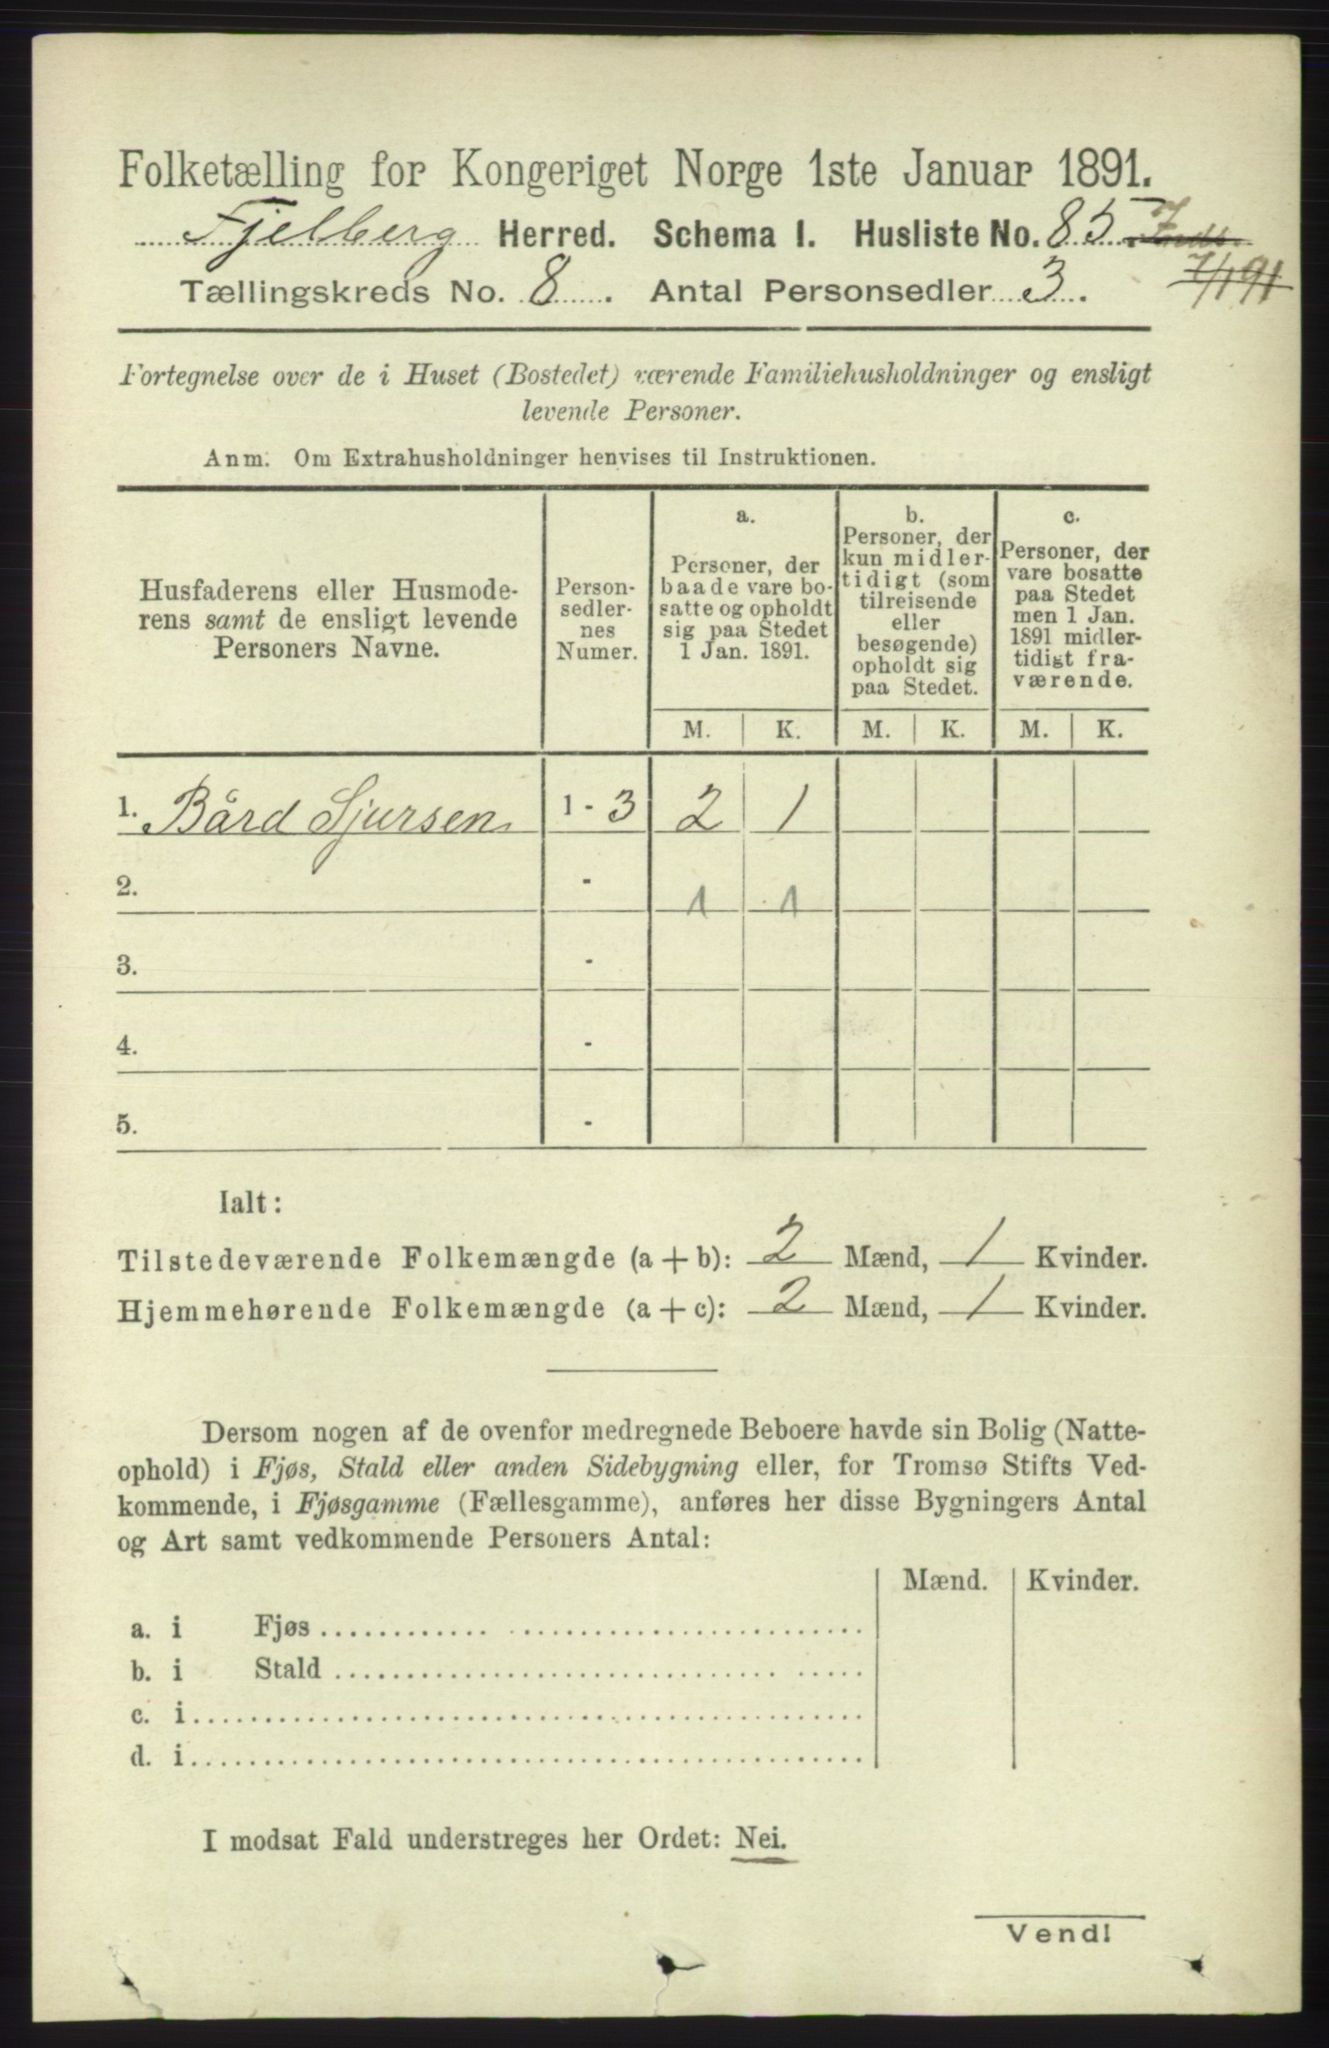 Folketælling for Kongeriget Norge 1ste Januar 1891.
Fjelberg Herred. Schema I. Husliste No. 85.
7/1 91
Tællingskreds No. 8. Antal Personsedler 3.
Fortegnelse over de i Huset (Bostedet) værende Familiehusholdninger og ensligt
levende Personer.
Anm. Om Extrahusholdninger henvises til Instruktionen.
Husfaderens eller Husmode-
rens samt de ensligt levende
Personers Navne.
Person-
sedler-
nes
Numer.
a.
Personer, der
baade vare bo-
satte og opholdt
sig paa Stedet
1 Jan. 1891.
b.
Personer, der
kun midler-
tidigt (som
tilreisende
eller
besøgende)
opholdt sig
paa Stedet.
c.
Personer, der
vare bosatte
paa Stedet
men 1 Jan.
1891 midler-
tidigt fra-
værende.
M. K. M. K. M. K.
1. Bård Sjursen 1 - 3 2 1
2. - 1 1
3. -
4. -
5. -
Ialt:
Tilstedeværende Folkemængde (a + b): 2 Mænd, 1 Kvinder.
Hjemmehørende Folkemængde (a + c): 2 Mænd, 1 Kvinder.
Dersom nogen af de ovenfor medregnede Beboere havde sin Bolig (Natte-
ophold) i Fjøs, Stald eller anden Sidebygning eller, for Tromsø Stifts Ved-
kommende, i Fjøsgamme (Fællesgamme), anføres her disse Bygningers Antal
og Art samt vedkommende Personers Antal:
Mænd. Kvinder.
a. i Fjøs
b. i Stald
c. i
d. i
I modsat Fald understreges her Ordet: Nei.
Vend!